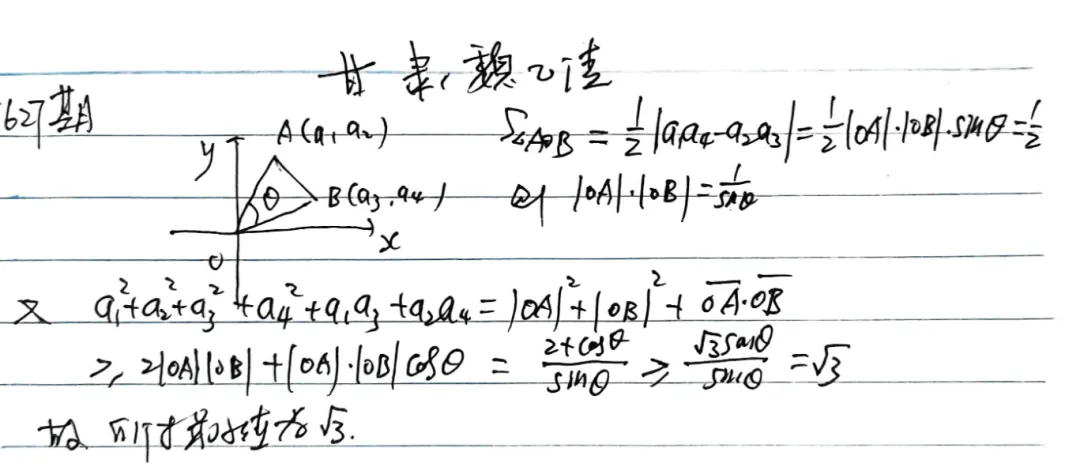 甘肃，魏乙清
627期
y A(a₁ a₂) S△AOB = 1/2|a₁a₄-a₂a₃| = 1/2|OA|·|OB|·sinθ = 1/2
θ B(a₃,a₄) 则 |OA|·|OB| = 1/sinθ
O x
又 a₁²+a₂²+a₃²+a₄²+a₁a₃+a₂a₄ = |OA|²+|OB|²+OA·OB
≥ 2|OA||OB|+|OA|·|OB|cosθ = (2+cosθ)/sinθ ≥ √3sinθ/sinθ = √3
故 所求最小值为√3.